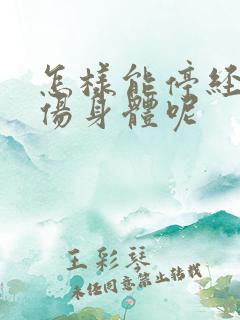 怎樣能停经
傷身體呢
王彩琴
未经同意禁止转载